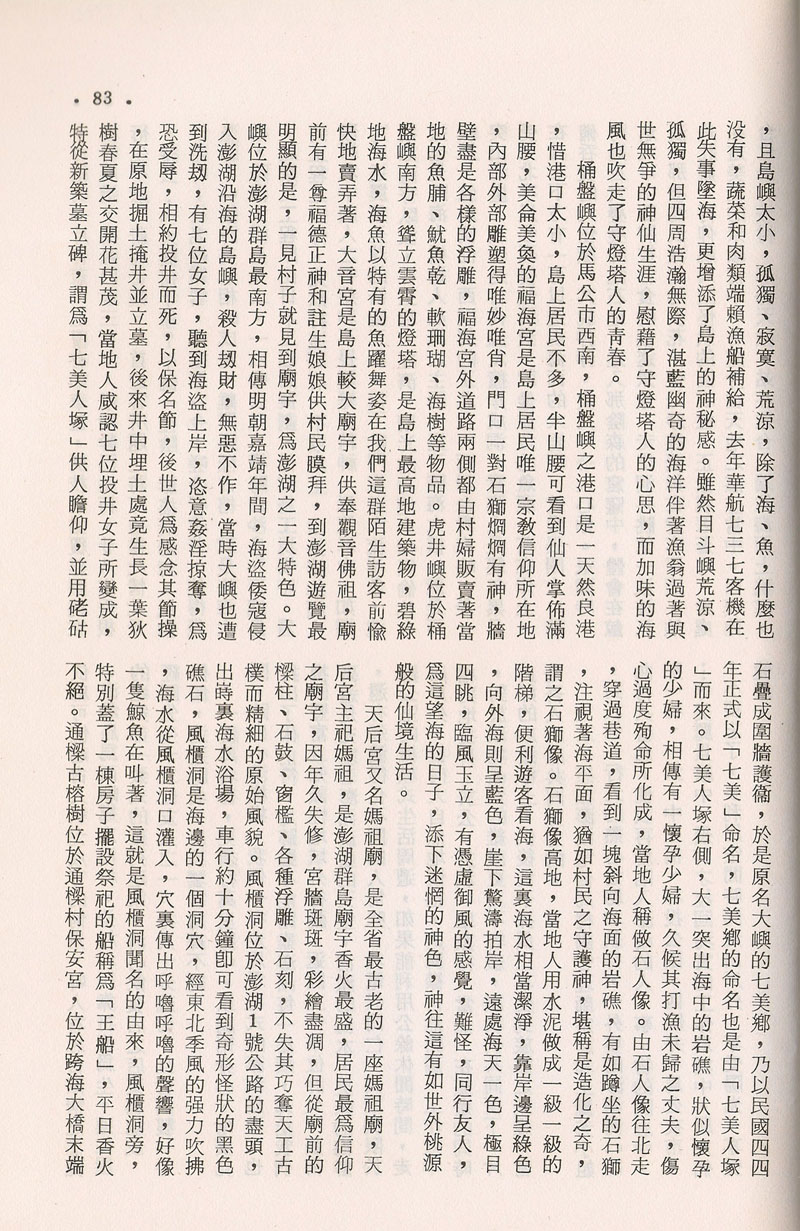 • 83 •
，且島嶼太小，孤獨、寂寞、荒涼，除了海、魚，什麼也
沒有，蔬菜和肉類端賴漁船補給，去年華航七三七客機在
此失事墜海，更增添了島上的神秘感。雖然目斗嶼荒涼、
孤獨，但四周浩瀚無際，湛藍幽奇的海洋伴著漁翁過著與
世無爭的神仙生涯，慰藉了守燈塔人的心思，而加味的海
風也吹走了守燈塔人的青春。
桶盤嶼位於馬公市西南，桶盤嶼之港口是一天然良港
，惜港口太小，島上居民不多，半山腰可看到仙人掌佈滿
山腰，美侖美奐的福海宮是島上居民唯一宗教信仰所在地
，內部外部雕塑得唯妙唯肖，門口一對石獅烱烱有神，牆
壁盡是各樣的浮雕，福海宮外道路兩側都由村婦販賣著當
地的魚脯、魷魚乾、軟珊瑚、海樹等物品。虎井嶼位於桶
盤嶼南方，聳立雲霄的燈塔，是島上最高地建築物，碧綠
地海水，海魚以特有的魚躍舞姿在我們這群陌生訪客前愉
快地賣弄著，大音宮是島上較大廟宇，供奉觀音佛祖，廟
前有一尊福德正神和註生娘娘供村民膜拜，到澎湖遊覽最
明顯的是，一見村子就見到廟宇，爲澎湖之一大特色。大
嶼位於澎湖群島最南方，相傳明朝嘉靖年間，海盜倭寇侵
入澎湖沿海的島嶼，殺人刼財，無惡不作，當時大嶼也遭
到洗刼，有七位女子，聽到海盜上岸，恣意姦淫掠奪，爲
恐受辱，相約投井而死，以保名節，後世人爲感念其節操
，在原地掘土掩井並立墓，後來井中埋土處竟生長一葉狄
樹春夏之交開花甚茂，當地人咸認七位投井女子所變成，
特從新築墓立碑，謂爲「七美人塚」供人瞻仰，並用硓𥑮
石疊成圍牆護衞，於是原名大嶼的七美鄉，乃以民國四四
年正式以「七美」命名，七美鄉的命名也是由「七美人塚
」而來。七美人塚右側，大一突出海中的岩礁，狀似懷孕
的少婦，相傳有一懷孕少婦，久候其打漁未歸之丈夫，傷
心過度殉命所化成，當地人稱做石人像。由石人像往北走
，穿過巷道，看到一塊斜向海面的岩礁，有如蹲坐的石獅
，注視著海平面，猶如村民之守護神，堪稱是造化之奇，
謂之石獅像。石獅像高地，當地人用水泥做成一級一級的
階梯，便利遊客看海，這裏海水相當潔淨，靠岸邊呈綠色
，向外海則呈藍色，崖下驚濤拍岸，遠處海天一色，極目
四眺，臨風玉立，有憑虛御風的感覺，難怪，同行友人，
爲這望海的日子，添下迷惘的神色，神往這有如世外桃源
般的仙境生活。
天后宮又名媽祖廟，是全省最古老的一座媽祖廟，天
后宮主祀媽祖，是澎湖群島廟宇香火最盛，居民最爲信仰
之廟宇，因年久失修，宮牆斑斑，彩繪盡凋，但從廟前的
樑柱、石鼓、窗檻、各種浮雕、石刻，不失其巧奪天工古
樸而精細的原始風貌。風櫃洞位於澎湖1號公路的盡頭，
出嵵裏海水浴場，車行約十分鐘卽可看到奇形怪狀的黑色
礁石，風櫃洞是海邊的一個洞穴，經東北季風的强力吹拂
，海水從風櫃洞口灌入，穴裏傳出呼嚕呼嚕的聲響，好像
一隻鯨魚在叫著，這就是風櫃洞聞名的由來，風櫃洞旁，
特別蓋了一棟房子擺設祭祀的船稱爲「王船」，平日香火
不絕。通樑古榕樹位於通樑村保安宮，位於跨海大橋末端